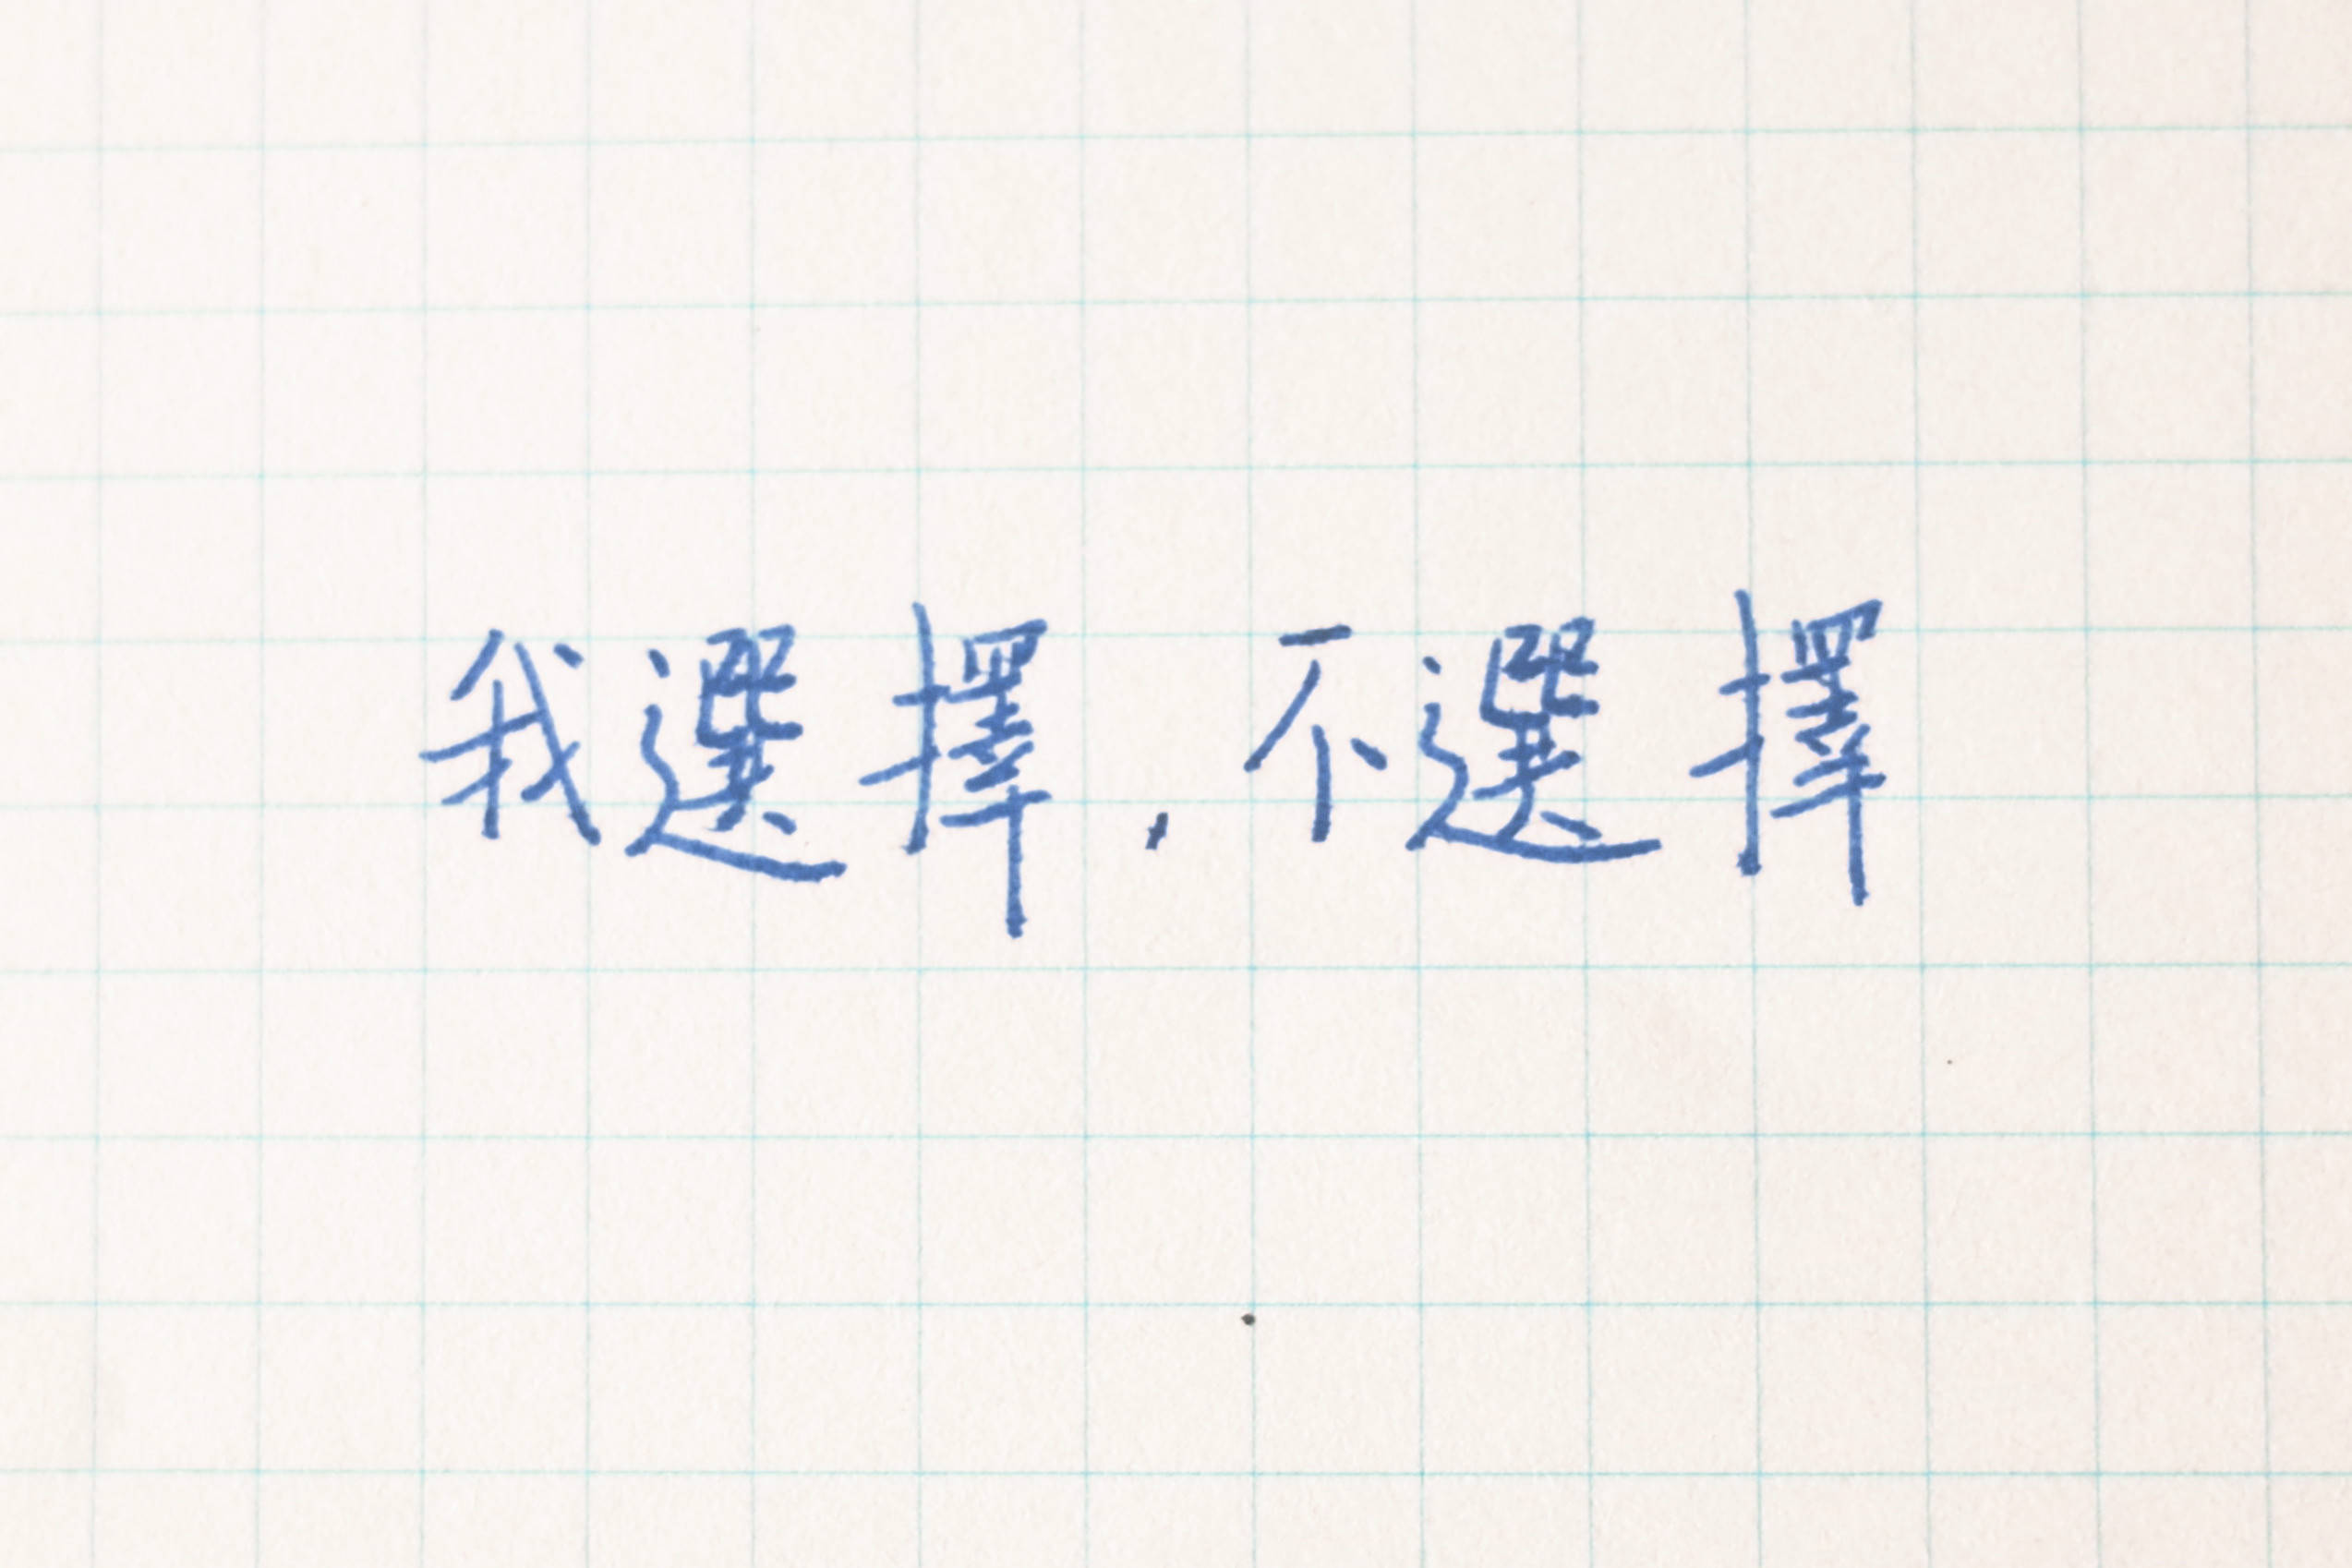 我選擇，不選擇